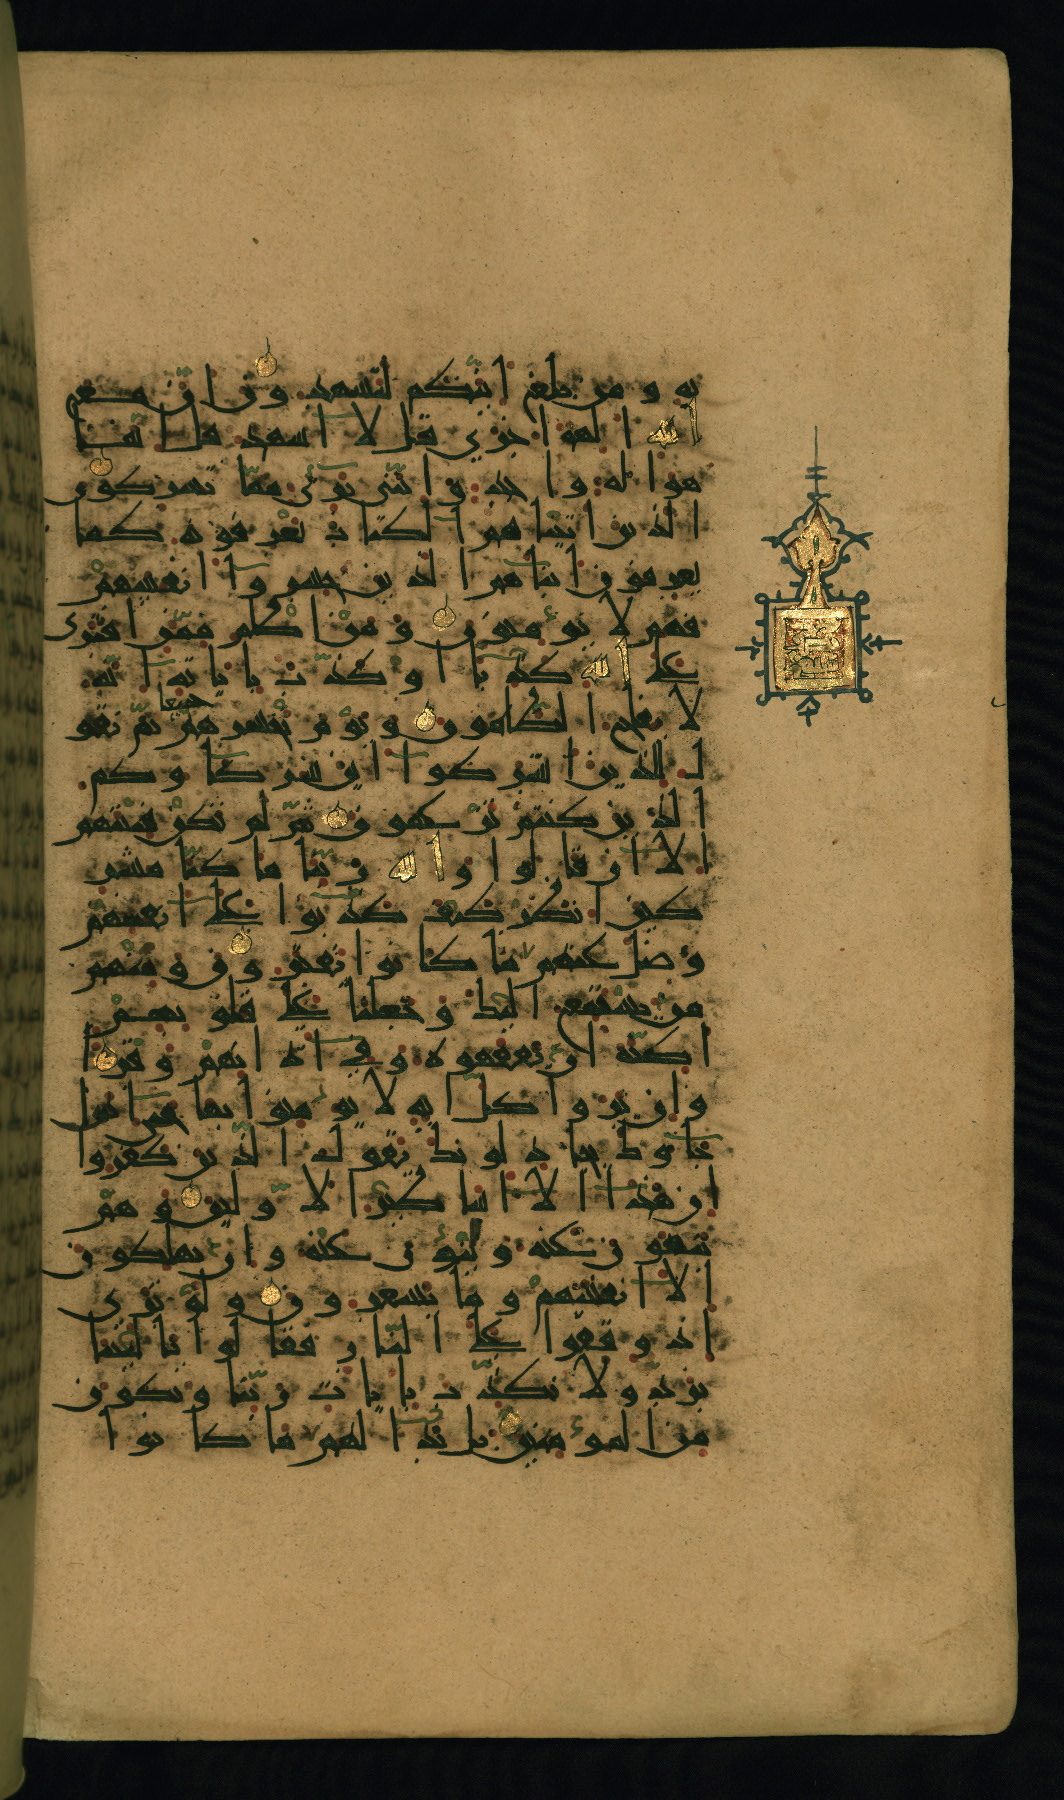 به ومن بلغ ائنكم لتشهدون ان مع
الله الهة اخرى قل لا اشهد قل انما
هو اله واحد وانني بريء مما تشركون
الذين اتيناهم الكتاب يعرفونه كما
يعرفون ابناهم الذين خسروا انفسهم
فهم لا يؤمنون ومن اظلم ممن افترى
على الله كذبا او كذب باياته انه
لا يفلح الظالمون ويوم نحشرهم جميعا ثم نقو
ل للذين اشركوا اين شركاوكم
الذين كنتم تزعمون ثم لم تكن فتنتهم
الا ان قالوا والله ربنا ما كنا مشر
كين انظر كيف كذبوا على انفسهم
وضل عنهم ما كانوا يفترون ومنهم
من يستمع اليك وجعلنا على قلوبهم
اكنة ان يفقهوه وفي اذانهم وقرا
وان يروا كل اية لا يؤمنوا بها حتى اذا
جاوك يجادلونك يقول الذين كفروا
ان هذا الا اساطير الاولين وهم
ينهون عنه وينون عنه وان يهلكون
الا انفسهم وما يشعرون ولو ترى
اذ وقفوا على النار فقالوا يا ليتنا
نرد ولا نكذب بايات ربنا ونكون
من المؤمنين بل بدا لهم ما كانوا